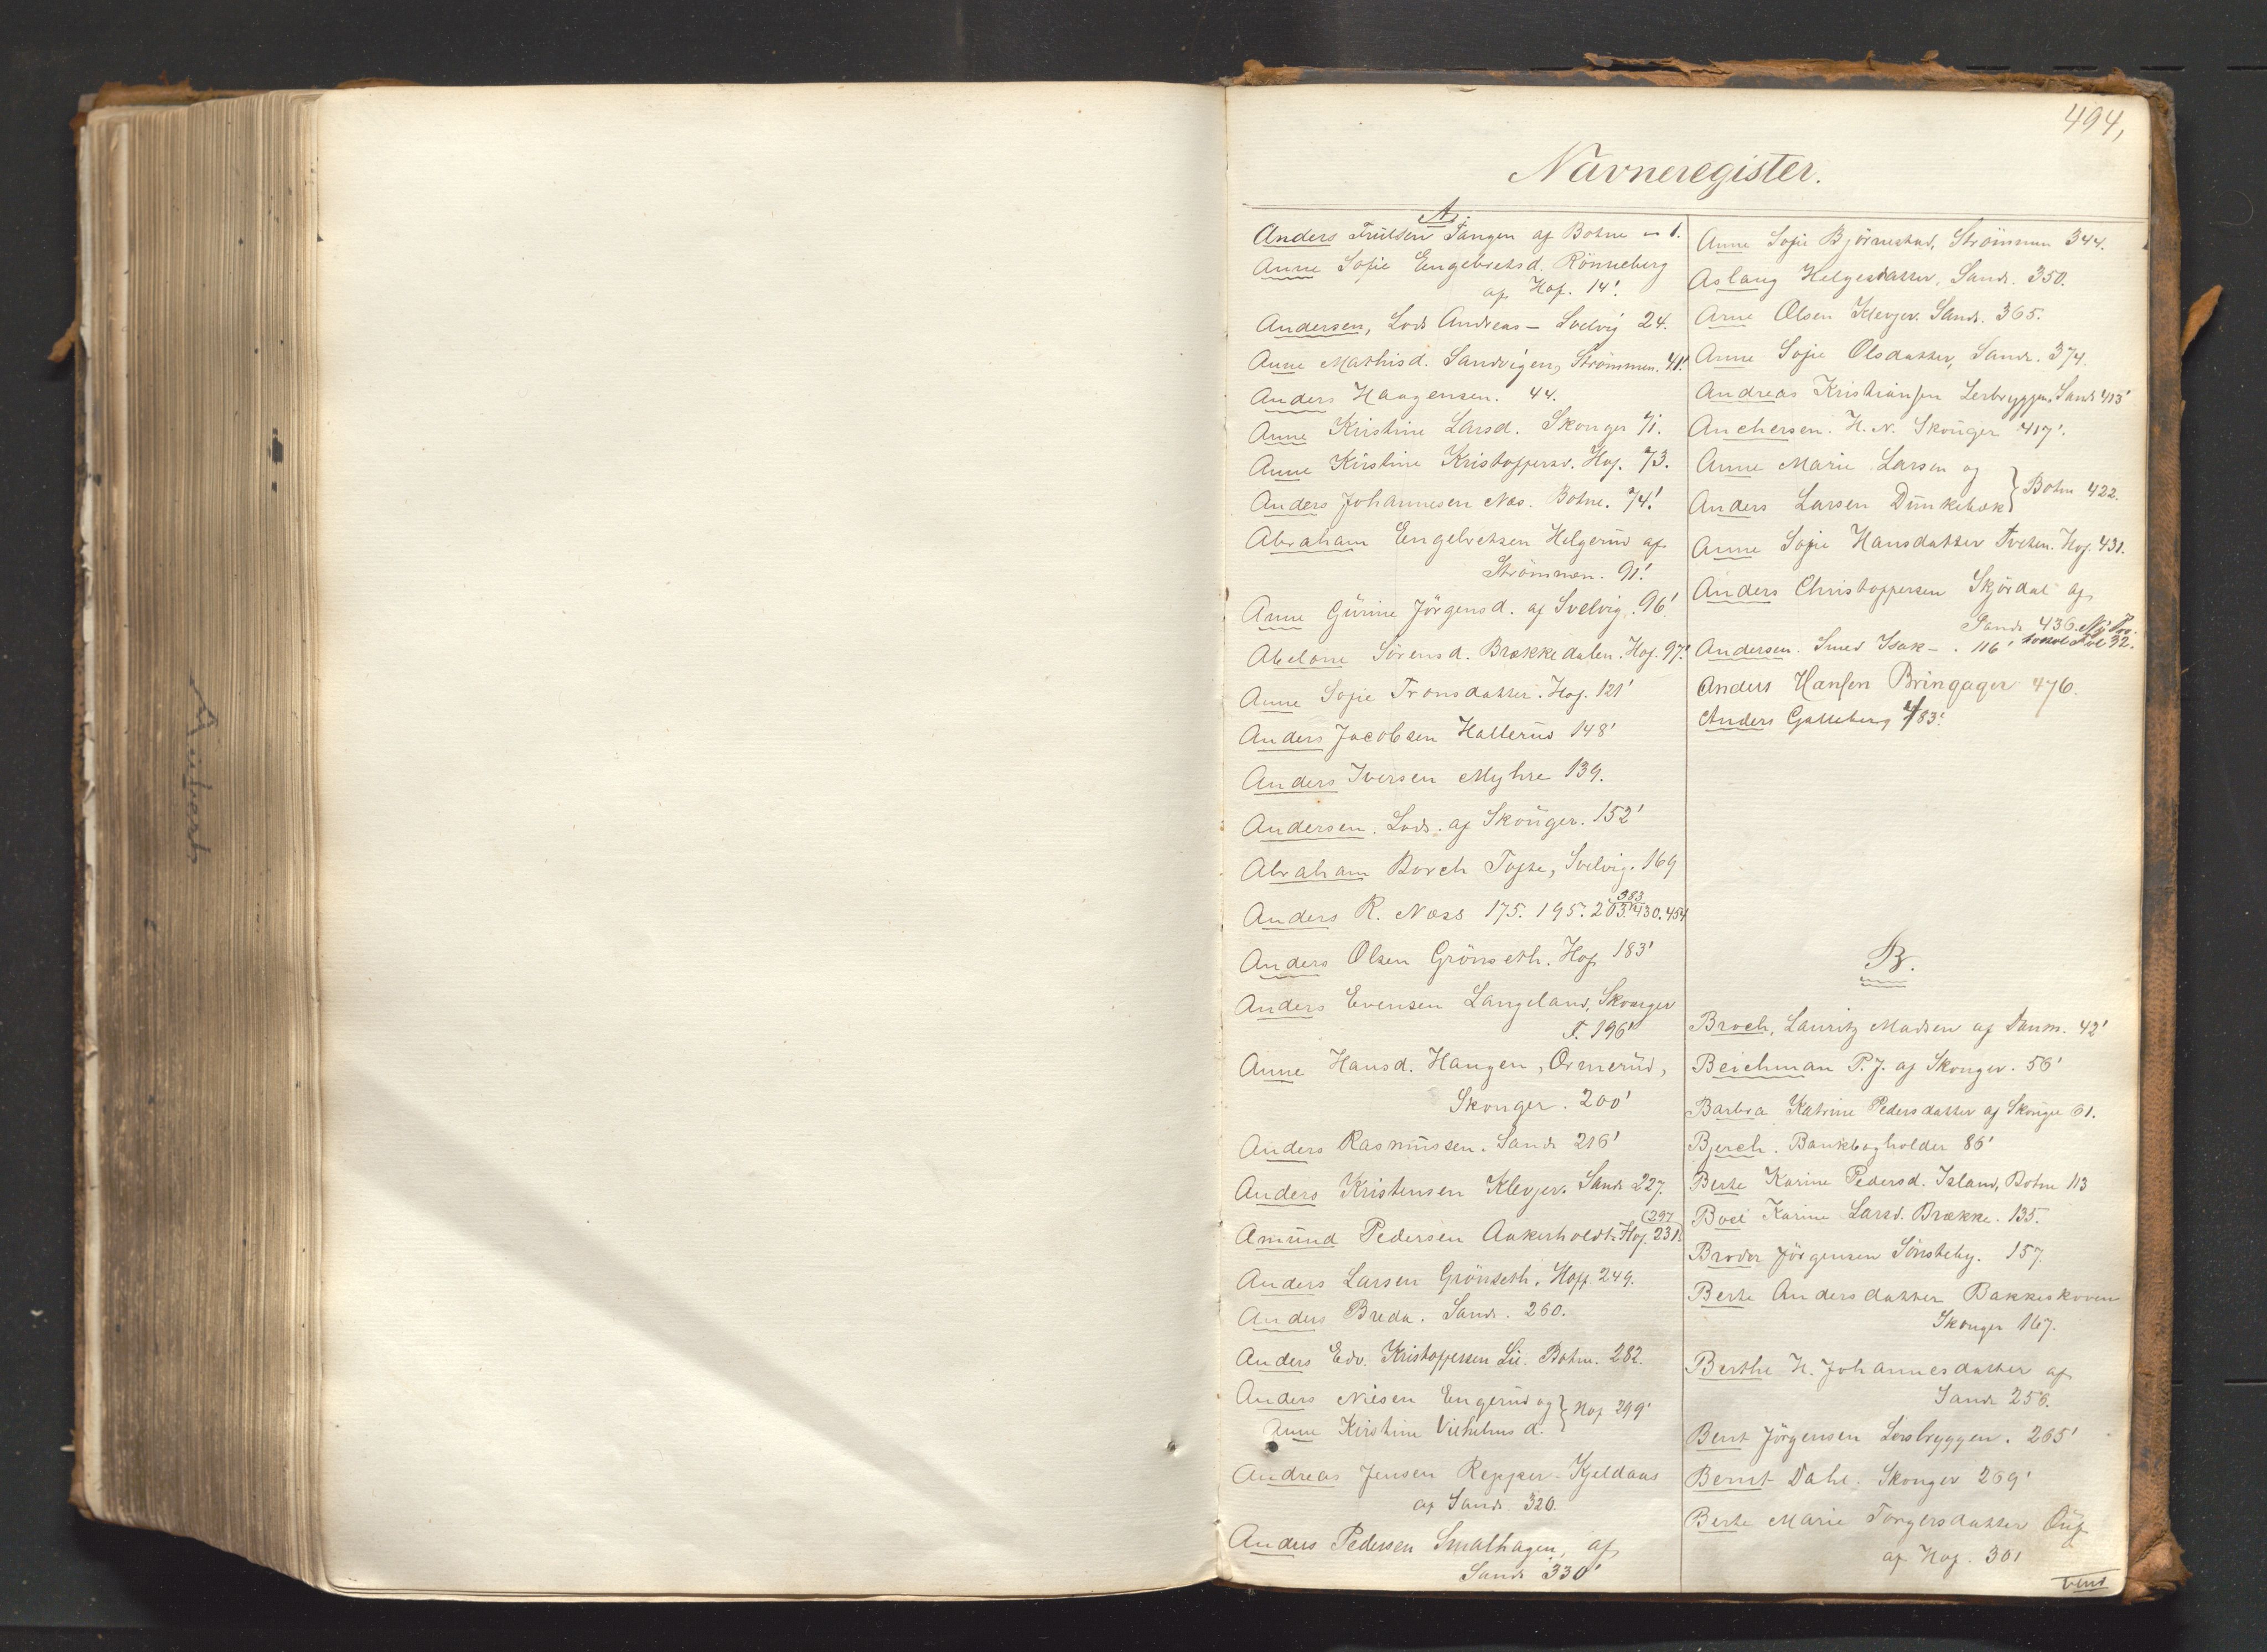 494,
Navneregister.
A.
Anders Trulsen Tangen af Botne 1.
Anne Sofie Engebretsd. Rönneberg
af Hof. 14'.
Andersen, Lods Andreas - Svelvig 24.
Anne Mathisd. Sandvigen, Strömmen. 41'.
Anders Haagensen. 44.
Anne Kristine Larsd. Skouger 71.
Anne Kirstine Kristoffersd. Hof. 73.
Anders Johannesen Næs. Botne. 74!
Abraham Engebretsen Helgerud af
Strömmen. 91!
Anne Gurine Jörgensd. af Svelvig. 96'
Abelone Sörensd. Brækkedalen. Hof. 97'.
Anne Sofie Tronsdatter. Hof. 121'
Anders Jacobsen Hallerud 148'
Anders Iversen Myhre 139.
Andersen. Lods. af Skouger. 152'
Abraham Borch Tofte, Svelvig. 169
383
Anders R. Næss 175. 195. 203. 430. 454
Anders Olsen Grönseth. Hof 183'
Anders Evensen Langeland, Skouger
F. 196'
Anne Hansd. Haugen, Ormerud,
Skouger. 200'
Anders Rasmussen. Sande 216'
Anders Kristensen Klevjer. Sande 227.
(297
Amund Pedersen Aakerholdt. Hof. 231
Anders Larsen Grönseth, Hoff. 249.
Anders Breda. Sande. 260.
Anders Edv. Kristoffersen Lie. Botne. 282.
Anders Nilsen Engerud og } Hof 299'
Anne Kirstine Vilhelms d.
Andreas Jensen Repper-Kjeldaas
af Sande. 320.
Anders Pedersen Smalhagen, af
Sande 330'
Anne Sofie Björnestad, Strömmen 344.
Aslaug Helgesdatter, Sande. 350.
Arne Olsen Klevjer. Sande. 365.
Anne Sofie Olsdatter, Sande. 374.
Andreas Kristiansen Lerbryggen, Sande 413'
Anchersen. H. N. Skouger 417'.
Anne Marie Larsen og
Anders Larsen Dunkebæk } Botne 422.
Anne Sofie Hansdatter Tveten. Hof. 431.
Anders Christoffersen Skjördal af
Sande 436.
Andersen. Smed Isak - . 116'
Anders Hansen Bringager 476.
Anders Galleberg 483'.
B.
Broch, Lauritz Madsen af Danm. 42'
Beichman P. J. af Skouger. 56'
Barbra Katrine Pedersdatter af Skouger 61.
Bjerch. Bankbogholder 86'
Berte Karine Pedersd. Island, Botne 113
Boel Karine Larsd. Brække. 135.
Broder Jörgensen Sönsteby. 157.
Berte Andersdatter Bakkeskoven
Skouger 167.
Berthe H. Johannesdatter af
Sande 256.
Bent Jörgensen Lersbryggen. 265'
Bernt Dahl. Skouger 269'
Berte Marie Torgersdatter
af Hof. 301
vend